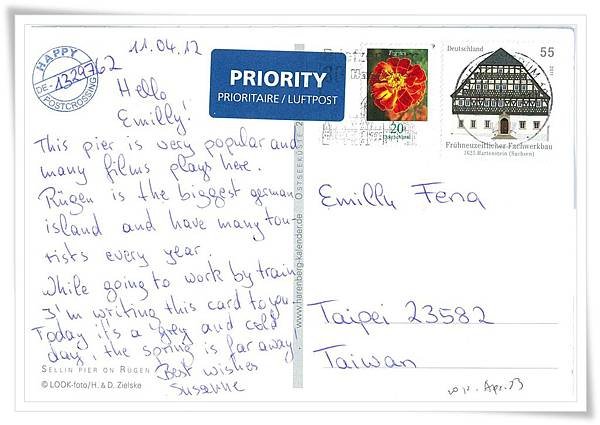 11.04.12
HAPPY
DE-1329762
POSTCROSSING
Hello
Emilly!
This pier is very popular and
many films plays here.
Rügen is the biggest german
island and have many tou-
rists every year.
While going to work by train
I'm writing this card to you.
Today it's a grey and cold
day, the spring is far away!
Best wishes
Susanne
SELLIN PIER ON RÜGEN
© LOOK-foto/H. & D. Zielske
PRIORITY
PRIORITAIRE / LUFTPOST
www.harenberg-kalender.de
OSTSEEKÜSTE
20
Deutschland
Deutschland
55
Frühneuzeitlicher Fachwerkbau
Hartenstein (Sachsen)
Emilly Fena
Taipei 23582
Taiwan
2012. Apr. 23